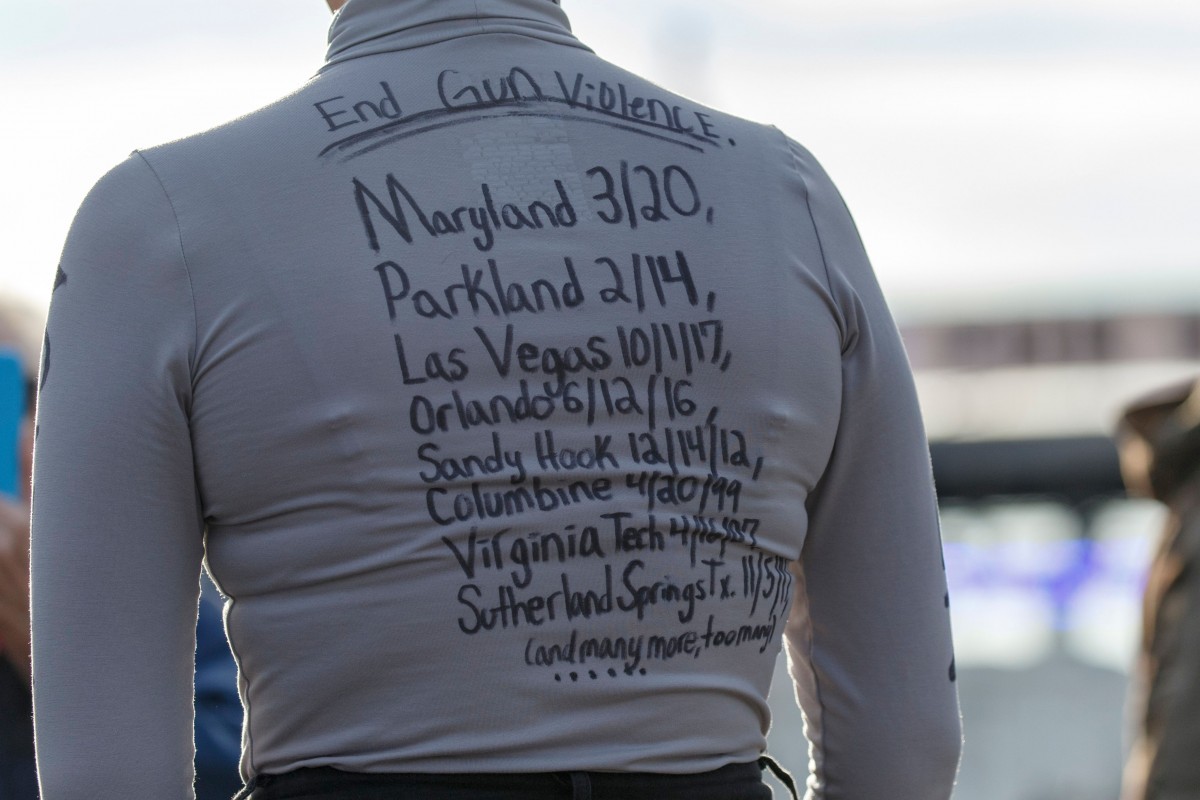 End Gun Violence.
Maryland 3/20,
Parkland 2/14,
Las Vegas 10/1/17,
Orlando 6/12/16,
Sandy Hook 12/14/12,
Columbine 4/20/99
Virginia Tech 4/16/07
Sutherland Springs Tx.
(and many more, too many)
......